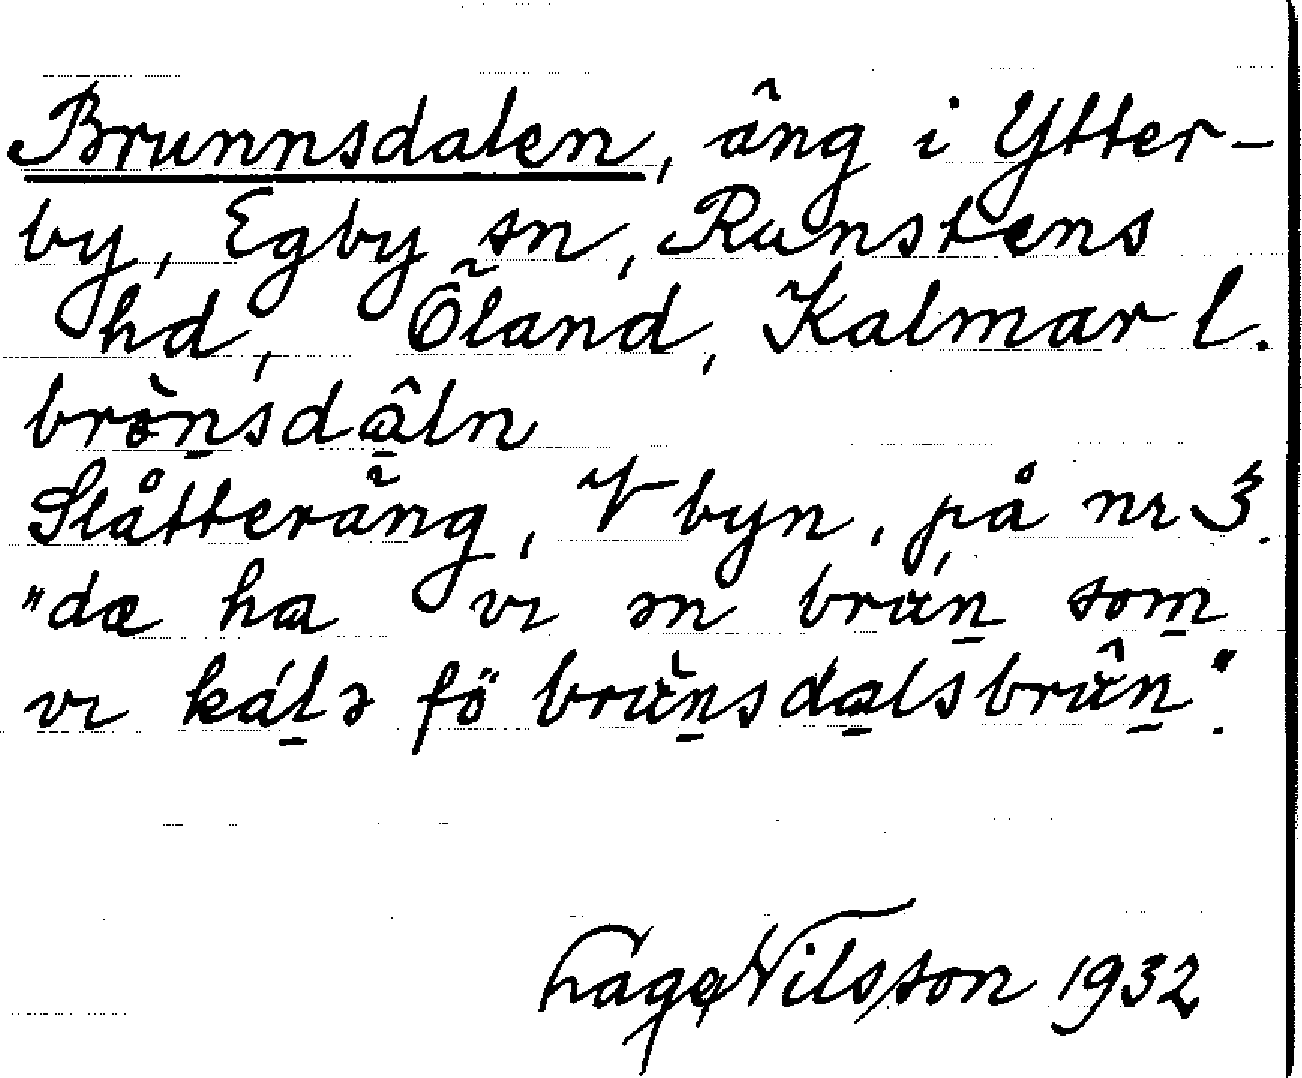 Brunnsdalen, äng i Ytter-
by, Egby sn, Runstens
hd, Öland, Kalmar l.
brònsdâln
Slåtteräng, V byn, på nr 3.
"dæ ha vi ən brún som
vi kálə fö brùnsdalsbrûn".
Nilsson 1932